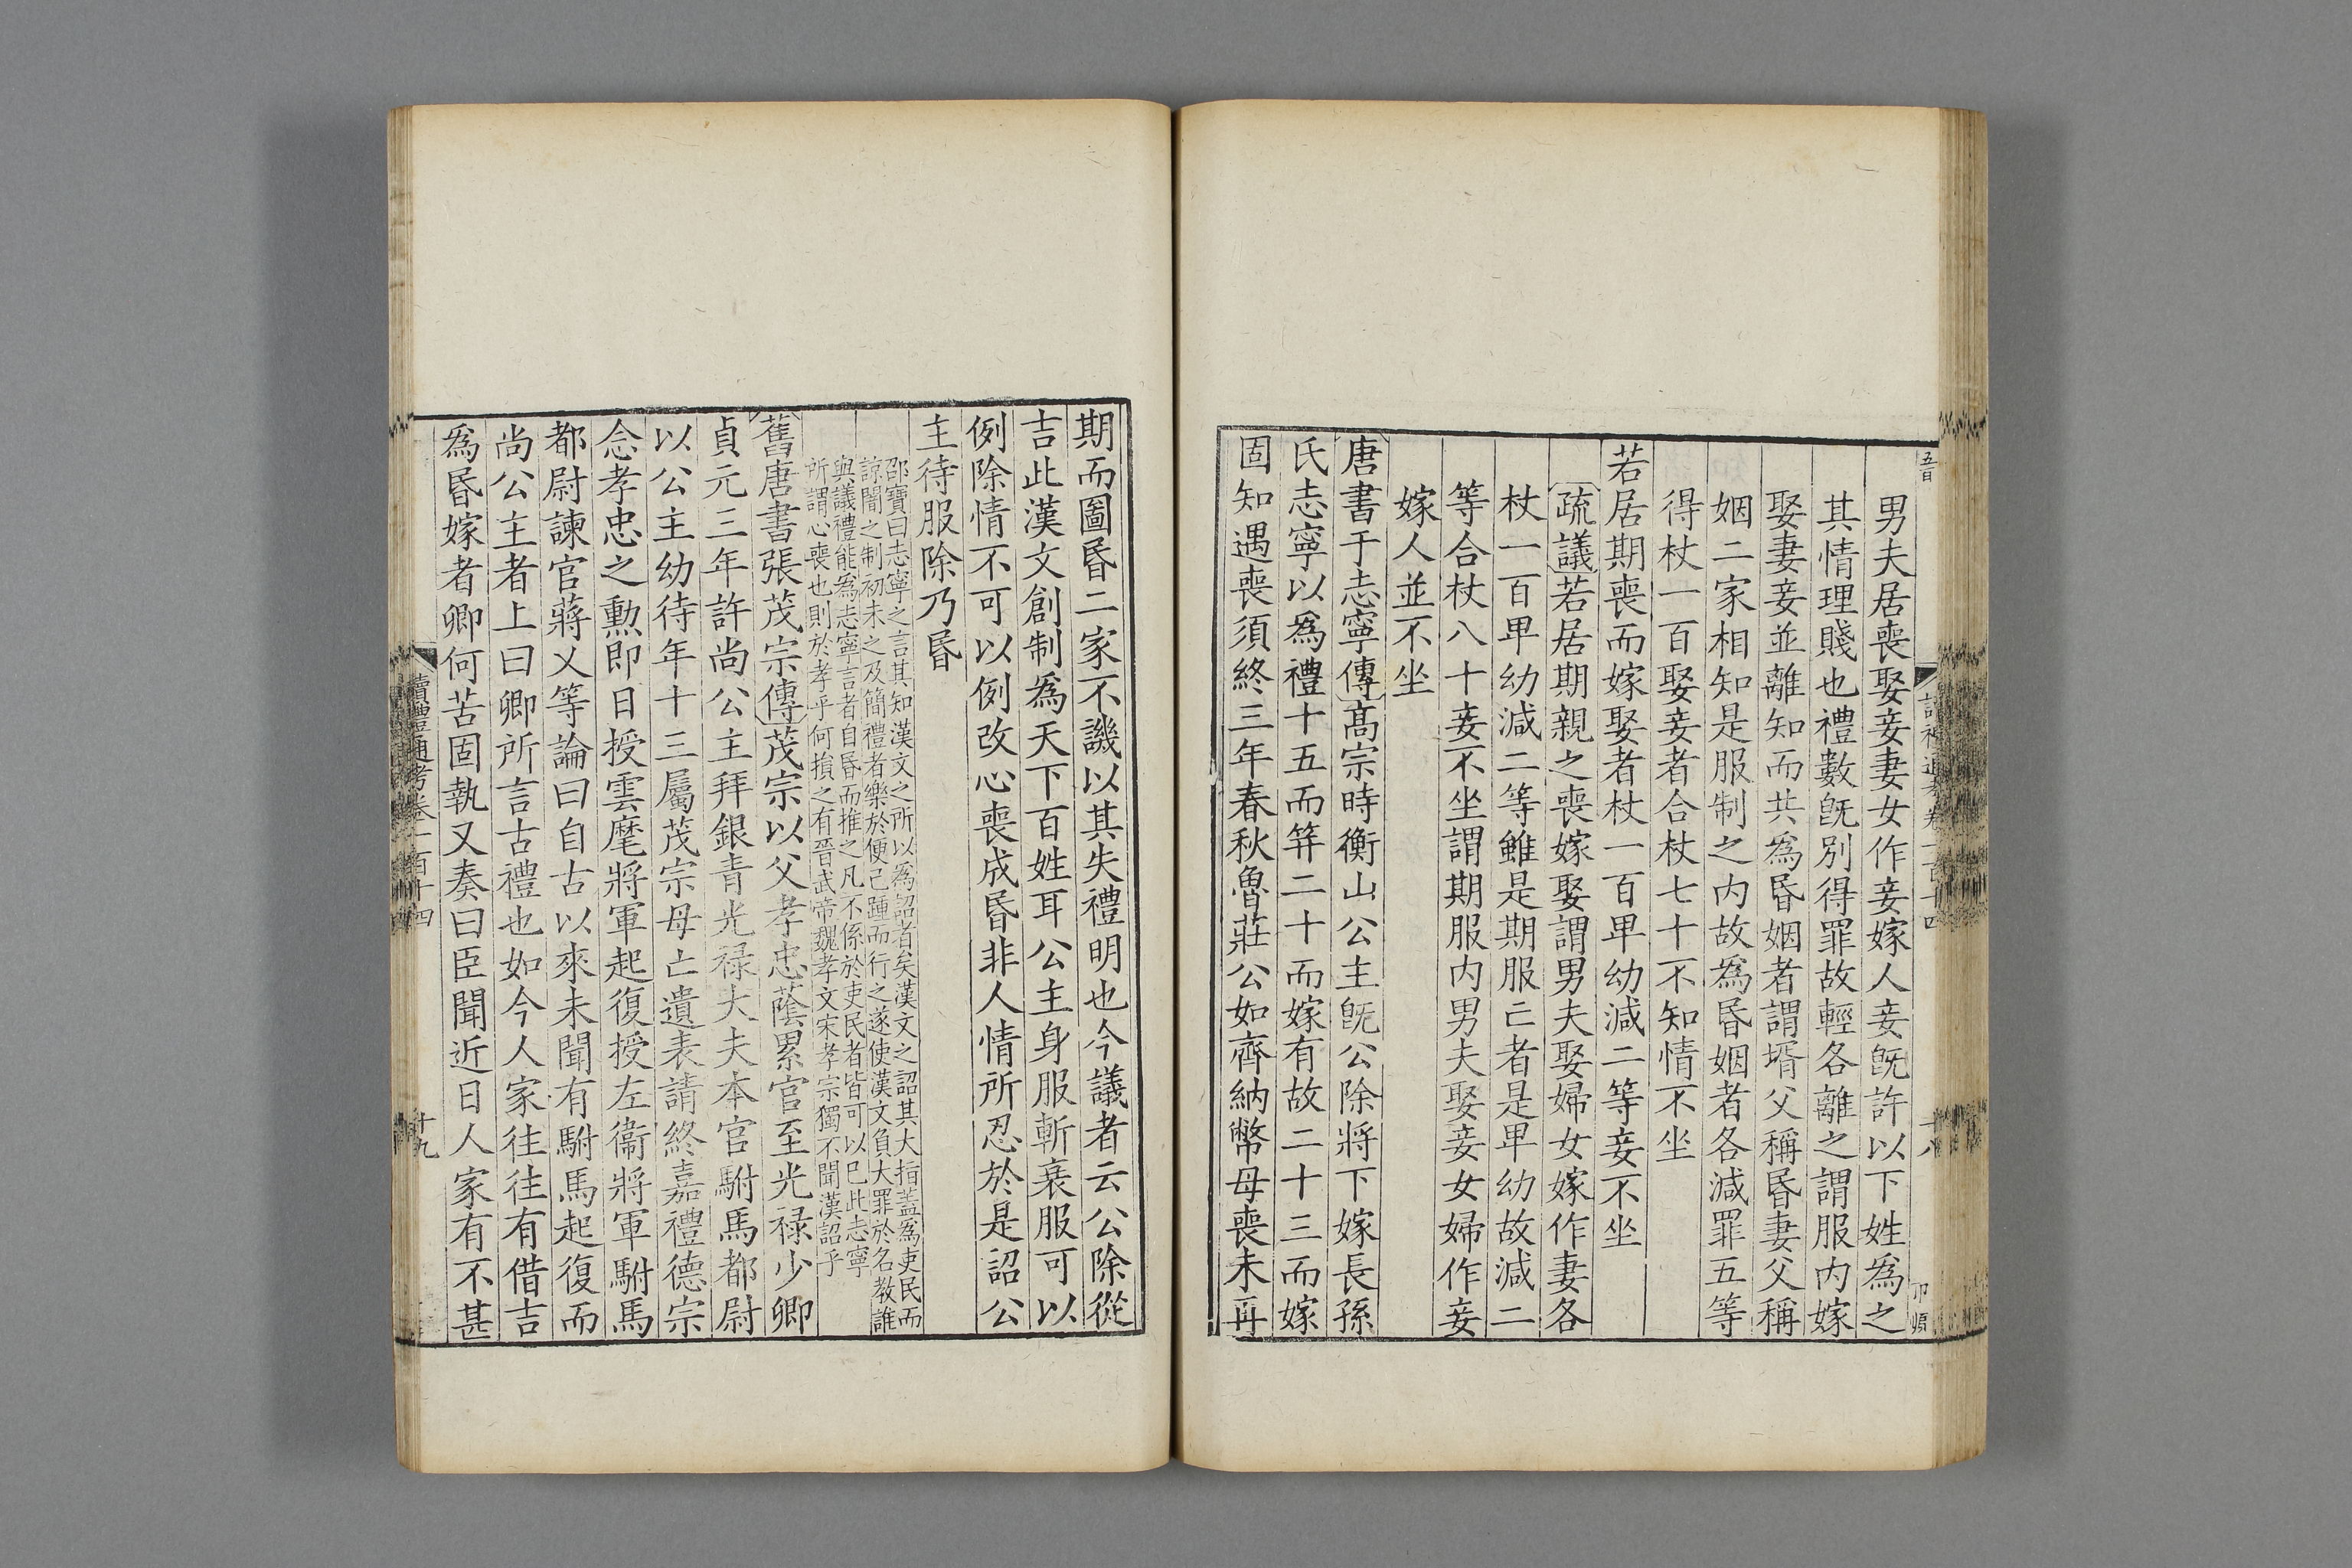 男夫居喪娶妾妻女作妾嫁人妾旣許以下姓爲之
其情理賤也禮數旣別得罪故輕各離之謂服内嫁
娶妻妾並離知而共爲昬姻者謂壻父稱昬妻父稱
姻二家相知是服制之内故爲昬姻者各減罪五等
得杖一百娶妾者合杖七十不知情不坐
若居期喪而嫁娶者杖一百卑幼減二等妾不坐
疏議若居期親之喪嫁娶謂男夫娶婦女嫁作妻各
杖一百卑幼減二等雖是期服亡者是卑幼故減二
等合杖八十妾不坐謂期服内男夫娶妾女婦作妾
嫁人並不坐
唐書于志寧傳高宗時衡山公主旣公除將下嫁長孫
氏志寧以爲禮十五而筓二十而嫁有故二十三而嫁
固知遇喪須終三年春秋魯莊公如齊納幣母喪未再
期而圖昬二家不譏以其失禮明也今議者云公除從
吉此漢文創制爲天下百姓耳公主身服斬衰服可以
例除情不可以例改心喪成昬非人情所忍於是詔公
主待服除乃昬
邵寶曰志寧之言其知漢文之所以爲詔者矣漢文之詔其大指蓋爲吏民而
諒闇之制初未之及簡禮者樂於便己踵而行之遂使漢文負大罪於名教誰
與議禮能爲志寧言者自昬而推之凡不係於吏民者皆可以已此志寧
所謂心喪也則於孝乎何損之有晉武帝魏孝文宋孝宗獨不聞漢詔乎
舊唐書張茂宗傳茂宗以父孝忠蔭累官至光禄少卿
貞元三年許尚公主拜銀青光禄大夫本官駙馬都尉
以公主幼待年十三屬茂宗母亡遺表請終嘉禮德宗
念孝忠之勲即日授雲麾將軍起復授左衞將軍駙馬
都尉諫官蔣乂等論曰自古以來未聞有駙馬起復而
尚公主者上曰卿所言古禮也如今人家往往有借吉
爲昬嫁者卿何苦固執又奏曰臣聞近日人家有不甚
讀禮通考卷一百十四
十九